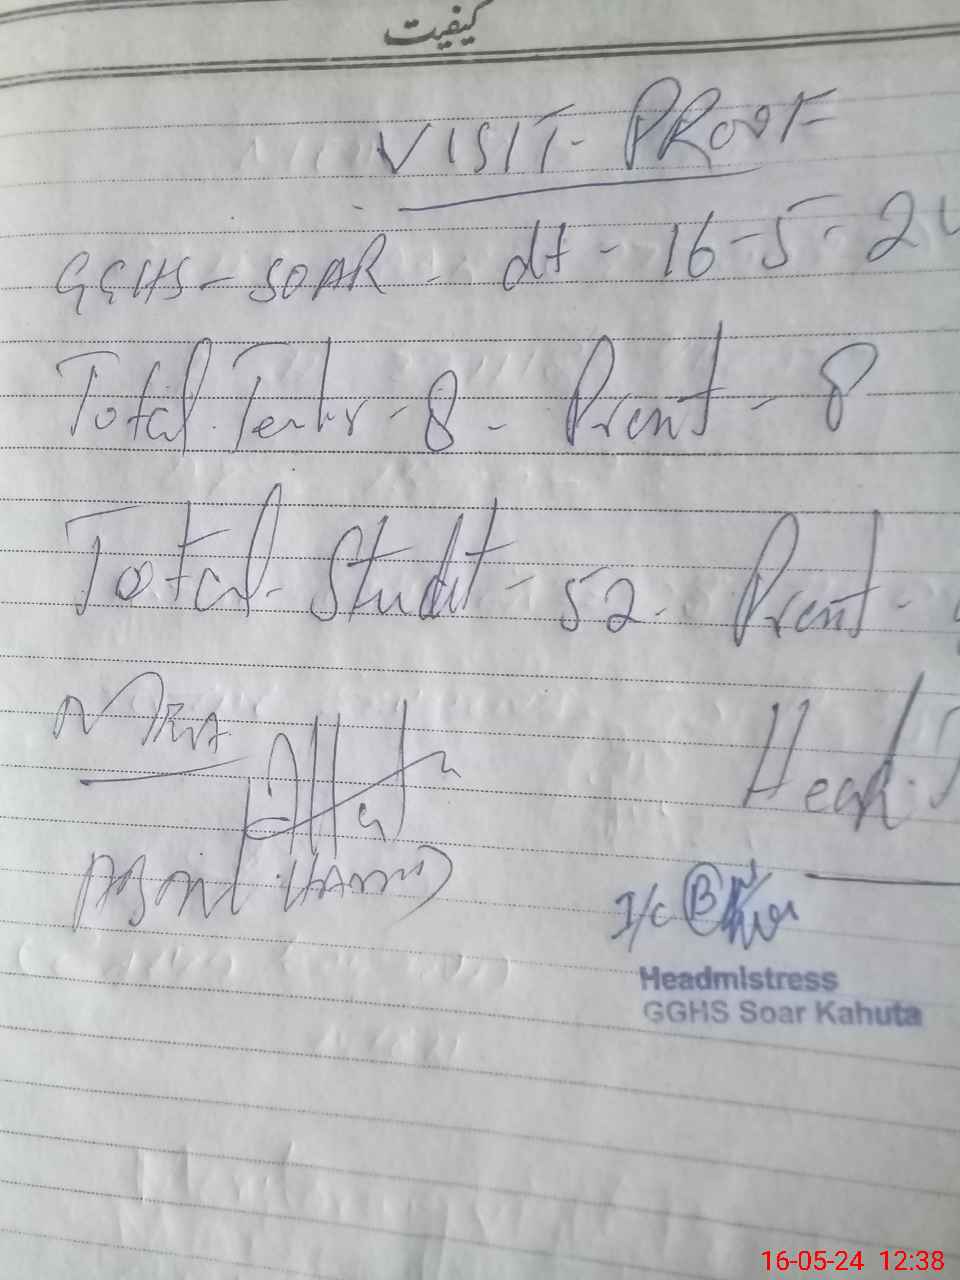 کیفیت
VISIT- PROOF
GGHS - SOAR - dt - 16-5-24
Total - 8 - Prent - 8
Total - Studt - 52 - Prent -
Head
I/C
Headmistress
GGHS Soar Kahuta
16-05-24 12:38